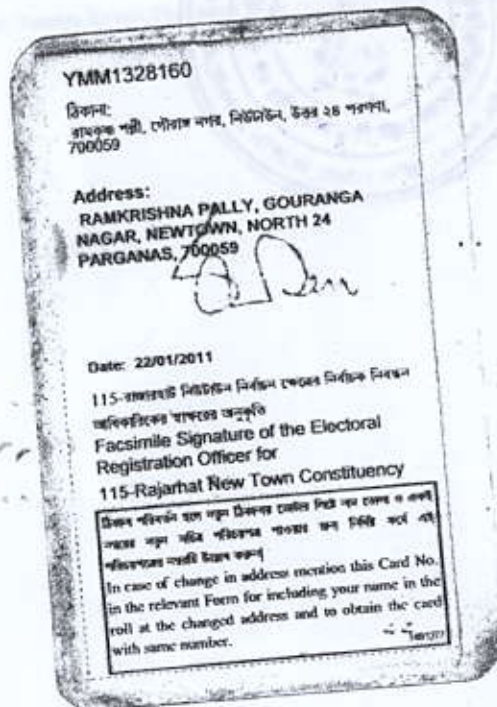 YMM1328160
ঠিকানা:
রামকৃষ্ণ পল্লী, গৌরাঙ্গ নগর, নিউটাউন, উত্তর ২৪ পরগণা,
700059
Address:
RAMKRISHNA PALLY, GOURANGA
NAGAR, NEWTOWN, NORTH 24
PARGANAS, 700059
Date: 22/01/2011
115-রাজারহাট নিউটাউন নির্বাচন ক্ষেত্রের নির্বাচক নিবন্ধন
আধিকারিকের স্বাক্ষরের অনুকৃতি
Facsimile Signature of the Electoral
Registration Officer for
115-Rajarhat New Town Constituency
ঠিকানা পরিবর্তন হলে নতুন ঠিকানায় ভোটার লিষ্টে নাম তোলা ও একই
নম্বরের নতুন সচিত্র পরিচয়পত্র পাওয়ার জন্য নির্দিষ্ট ফর্মে এই
পরিচয়পত্রের নম্বরটি উল্লেখ করুন
In case of change in address mention this Card No.
in the relevant Form for including your name in the
roll at the changed address and to obtain the card
with same number.